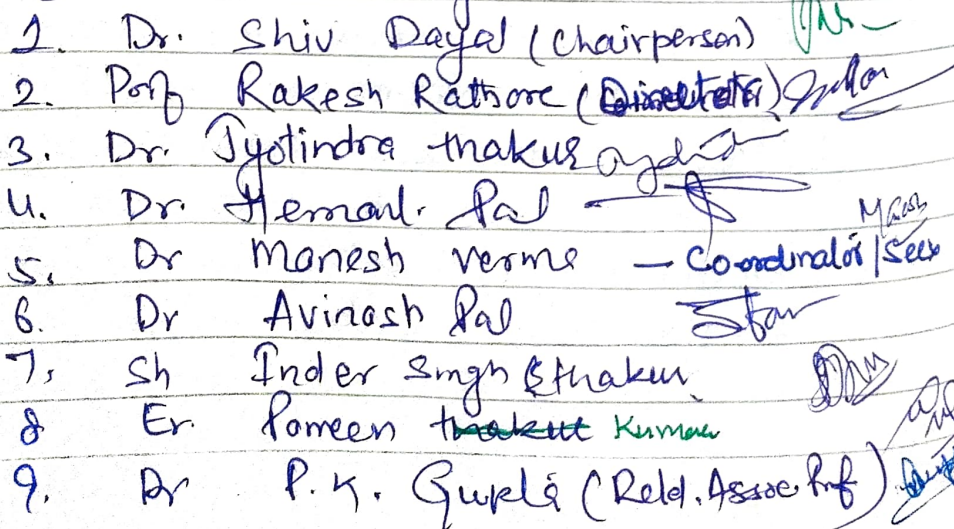 1. Dr. Shiv Dayal (Chairperson)
2. Prof Rakesh Rathore (Director)
3. Dr. Jyotindra thakur
4. Dr. Hemant. Pal
5. Dr Manesh verma - Co-ordinator/Secy
6. Dr Avinash Pal
7. Sh Inder Singh thakur
8 Er. Parveen thakur Kumar
9. Dr P.K. Gupta (Retd. Assoc. Prof)